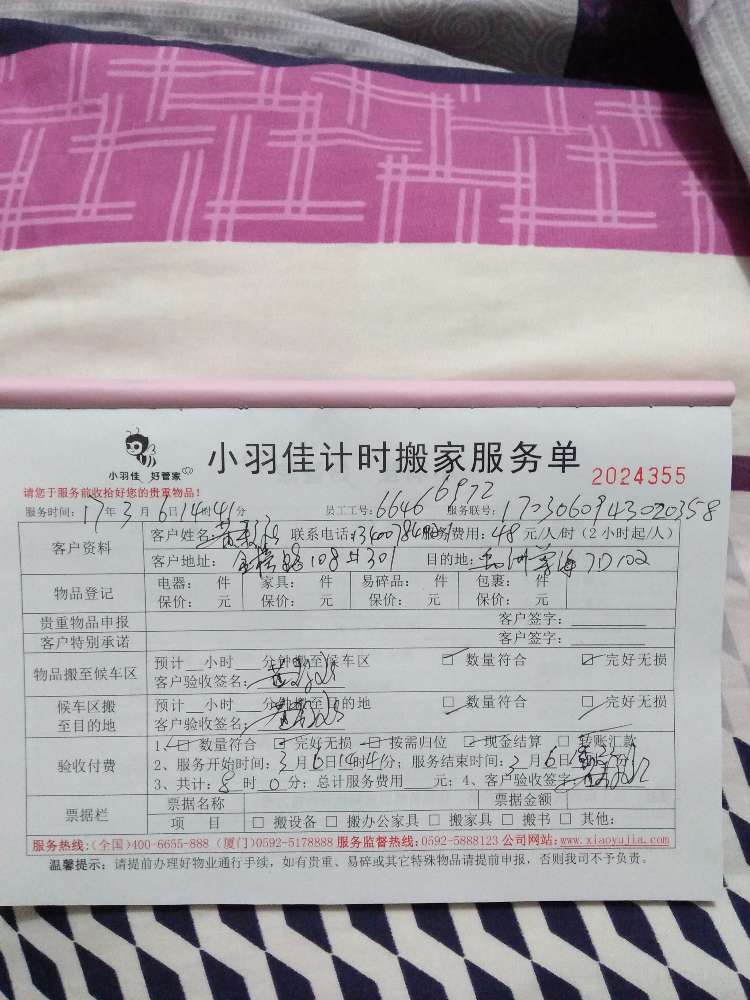 小羽佳 好管家
小羽佳计时搬家服务单 2024355
请您于服务前收拾好您的贵重物品!
服务时间: 17年3月6日14时41分 员工工号: 6646 6972 服务联号: 1703060943020358
客户资料 客户姓名: 联系电话: 服务费用: 48元/人/时 (2小时起/人)
客户地址: 108号301 目的地: 7D102
物品登记 电器: 件 家具: 件 易碎品: 件 包裹: 件
保价: 元 保价: 元 保价: 元 保价: 元
贵重物品申报 客户签字:
客户特别承诺 客户签字:
物品搬至候车区 预计__小时__分钟搬至候车区 □ 数量符合 □ 完好无损
客户验收签名:
候车区搬至目的地 预计__小时__分钟搬至目的地 □ 数量符合 □ 完好无损
客户验收签名:
验收付费 1、□ 数量符合 □ 完好无损 □ 按需归位 □ 现金结算 □ 转账汇款
2、服务开始时间: 3月6日14时41分; 服务结束时间: 3月6日
3、共计: 8时0分; 总计服务费用__元; 4、客户验收签字:
票据栏 票据名称 票据金额
项 目 □ 搬设备 □ 搬办公家具 □ 搬家具 □ 搬书 □ 其他:
服务热线:(全国)400-6655-888 (厦门)0592-5178888 服务监督热线:0592-5888123 公司网站:www.xiaoyujia.com
温馨提示: 请提前办理好物业通行手续, 如有贵重、易碎或其它特殊物品请提前申报, 否则我司不予负责。